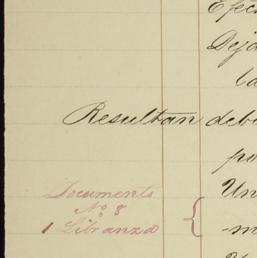 Efec
Deja
la
Resultan debi
po
Documento Un
Nº 8
1 Libranza -m